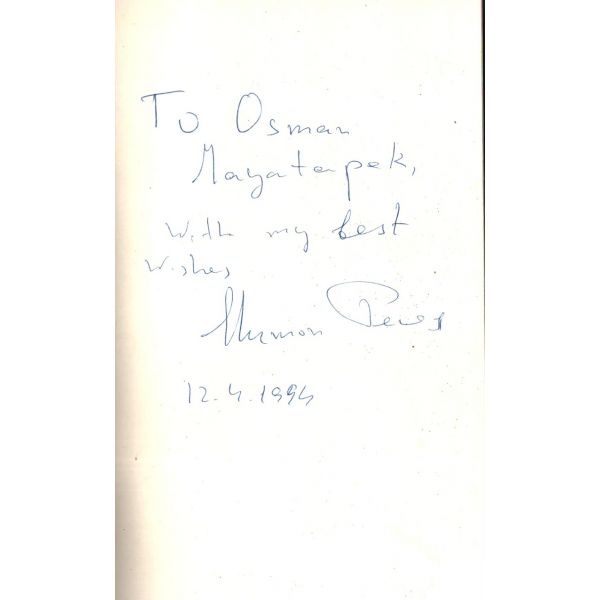 To Osman
Mayatepek,
With my best
wishes
Shimon Peres
12.4.1994